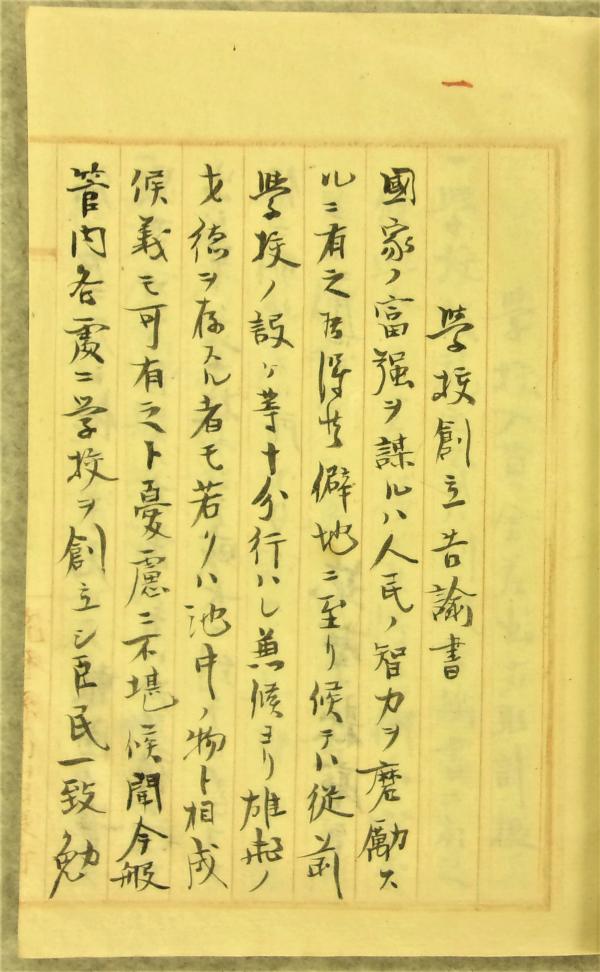 一
學校創立告諭書
國家ノ富強ヲ謀ルハ人民ノ智力ヲ磨勵ス
ルニ有之候得共僻地ニ至リ候テハ従前
學校ノ設ケ等十分行ハレ兼候ヨリ雄飛ノ
才徳ヲ存スル者モ若クハ池中ノ物ト相成
候義モ可有之ト憂慮ニ不堪候間今般
管内各處ニ学校ヲ創立シ臣民一致勉